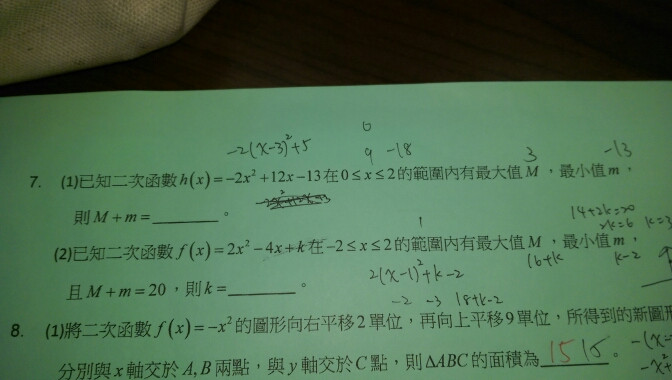 0
-2(x-3)²+5 9 -18 3 -13
7. (1)已知二次函數 h(x)=-2x²+12x-13在0≤x≤2的範圍內有最大值 M ,最小值 m ,
則 M+m=________。
14+2k=20
1 2k=6 k=3
(2)已知二次函數 f(x)=2x²-4x+k在-2≤x≤2的範圍內有最大值 M ,最小值 m ,
2(x-1)²+k-2 16+k k-2
且 M+m=20,則 k=________。
-2 -3 18+k-2
8. (1)將二次函數 f(x)=-x² 的圖形向右平移2單位,再向上平移9單位,所得到的新圖形
分別與 x 軸交於 A,B 兩點,與 y 軸交於 C 點,則 ΔABC 的面積為 15 15 。